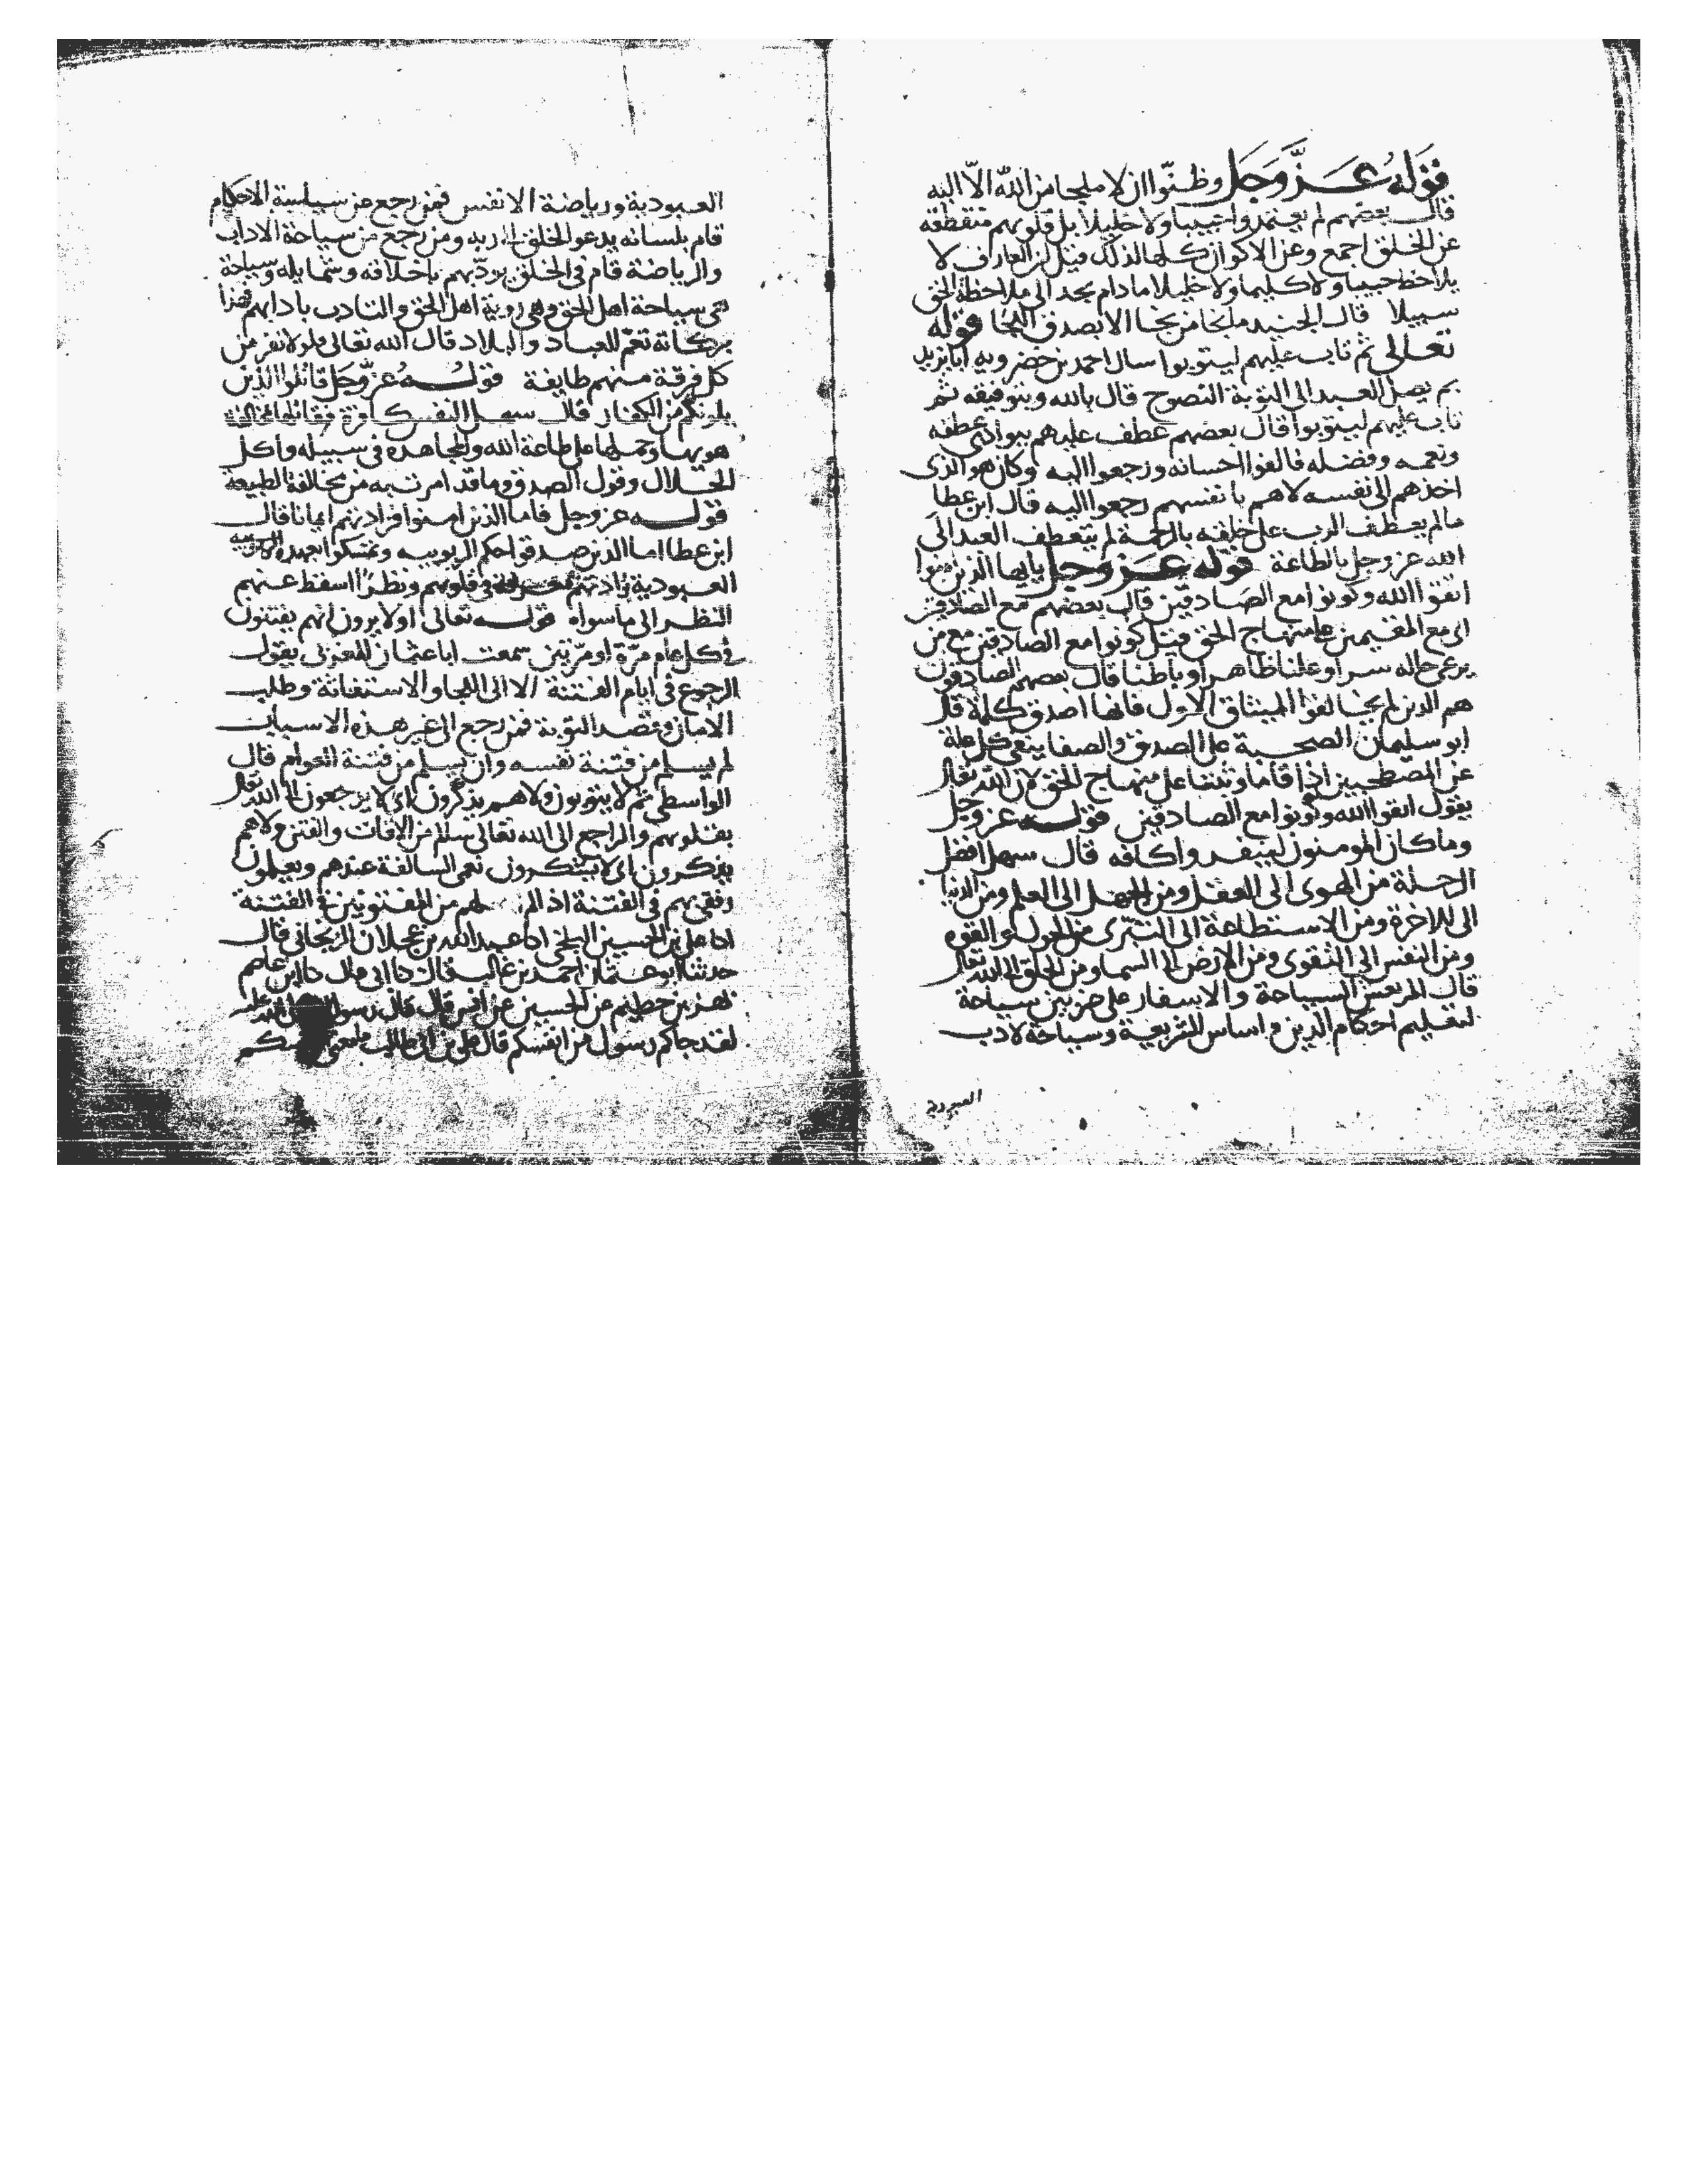 قوله عَزَّوَجَل وظنّوا ان لا ملجا من الله الاّ اليه
قال بعضهم لم يعتمدوا حبيبا ولا خليلا بل قلوبهم منقطعة
عن الخلق اجمع وعن الاكوان كلها لذلك قيل ان العارف لا
يلاحظ حبيبا ولا كليما ولا خليلا ما دام يجد الى ملاحظة الحق
سبيلا قال الجنيد ما نجا من نجا الا بصدق اللجا قوله
تعالى ثم تاب عليهم ليتوبوا سال احمد بن خضرويه ابا يزيد
بم يصل العبد الى التوبة النصوح قال بالله وبتوفيقه ثم
تاب عليهم ليتوبوا قال بعضهم عطف عليهم ببوادى عطفه
ونعمه وفضله فالفوا احسانه ورجعوا اليه وكان هو الذى
اخذهم الى نفسه لا هم بانفسهم رجعوا اليه قال ابن عطا
ما لم يعطف الرب على خلقه بالرحمة لم يتعطف العبد الى
الله عز وجل بالطاعة قوله عَز وَجل يايها الذين امنوا
اتقوا الله وكونوا مع الصادقين قال بعضهم مع الصادقين
اى مع المقيمين على منهاج الحق قيل كونوا مع الصادقين مع من
يرعى حاله سرا وعلنا ظاهرا وباطنا قال بعضهم الصادقون
هم الذين لم يخالفوا الميثاق الاول فانها اصدق كلمة قال
ابو سليمان الصحبة على الصدق والصفا ينفى كل علة
عن المصطحبين اذا قاما وثبتا على منهاج الحق لان الله تعالى
يقول اتقوا الله وكونوا مع الصادقين قوله عز وجل
وما كان المومنون لينفروا كافه قال سهل افضل
الرحلة من الهوى الى العقل ومن الجهل الى العلم ومن الدنيا
الى الاخرة ومن الاستطاعة الى التبرّى من الحول والقوه
ومن النفس الى التقوى ومن الارض الى السما ومن الخلق الى الله تعالى
قال المرتعش السياحة والاسفار على ضربين سياحة
لتعليم احكام الدين واساس الشريعة وسياحة لادب
العبودية
العبودية ورياضة الانفس فمن رجع من سياسة الاحكام
قام بلسانه يدعو الخلق الى ربه ومن رجع من سياحة الاداب
والرياضة قام فى الخلق يودّبهم باخلاقه وشمايله وسياحة
هى سياحة اهل الحق وهى روية اهل الحق والتادب بادابهم فهذا
بركاته تعمّ للعباد والبلاد قال الله تعالى فلولا نفر من
كل فرقة منهم طايفة قوله عزّ وَجَل قاتلوا الذين
يلونكم من الكفار قال سهل النفس كافرة فقاتلها بمخالفة
هويها وحملها على طاعة الله والمجاهده فى سبيله واكل
الحلال وقول الصدق وما قد امرت به من مخالفة الطبيعة
قوله عز وجل فاما الذين امنوا فزادتهم ايمانا قال
ابن عطا اما الذين صدقوا حكم الربوبيه وتمسكوا بعهدة
العبودية زادتهم معرفة فى قلوبهم ونظرًا اسقط عنهم
النظر الى ما سواه قوله تعالى اولا يرون انهم يفتنون
فى كل عام مرّة او مرّتين سمعت ابا عثمان المغربى يقول
الرجوع فى ايام الفتنة الا الى اللجا والاستغاثة وطلب
الامان وقصد التوبة فمن رجع الى غير هذه الاسباب
لم يسلم من فتنة نفسه وان يسلم من فتنة العوام قال
الواسطى ثم لا يتوبون ولا هم يذكرون اى لا يرجعون الى الله تعالى
بقلوبهم والراجع الى الله تعالى سالم من الافات والفتن ولا هم
يذكرون اى لا يتفكرون نعمى السالفة عندهم ويعلمون
رفقى بهم فى الفتنة اذ لم من المفتونين فى الفتنة
انا على بن الحسين البلخى انا عبد الله بن عجلان الزنجانى قال
حدثنا ابو عثمان احمد بن غالب قال
نهز بن حطيم عن الحسين عن انس قال قال رسول الله
لقد جاكم رسول من انفسكم قال على بن ابى طالب ما معنى